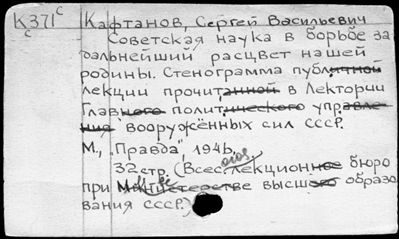 К371 с
с
Кафтанов, Сергей Васильевич
Советская наука в борьбе за
дальнейший расцвет нашей
родины. Стенограмма публичной
лекции прочитанной в Лектории
Главного политического управле
ния вооружённых сил СССР.
М., „Правда", 1946.
32 стр. (Всес. лекционное бюро
при Министерстве высшего образо
вания СССР.)